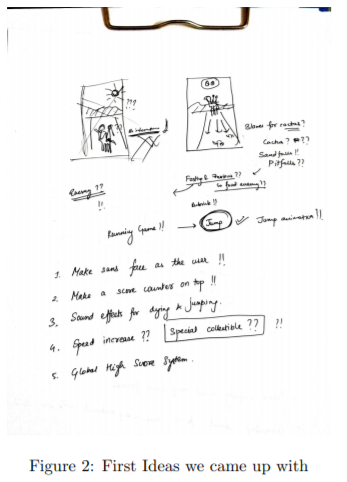 ???
??
Blanes for cactus?
Cactus? ??
Sandfalls!!
Pitfalls??
Enemy??
!!
So fast enemy??
Running Game!! → Jump ✓ Jump animation!!
1. Make sans face as the user !!
2. Make a score counter on top !!
3. Sound effects for dying & jumping.
4. Speed increase ?? Special collectible ?? ?!
5. Global High Score System.
Figure 2: First Ideas we came up with